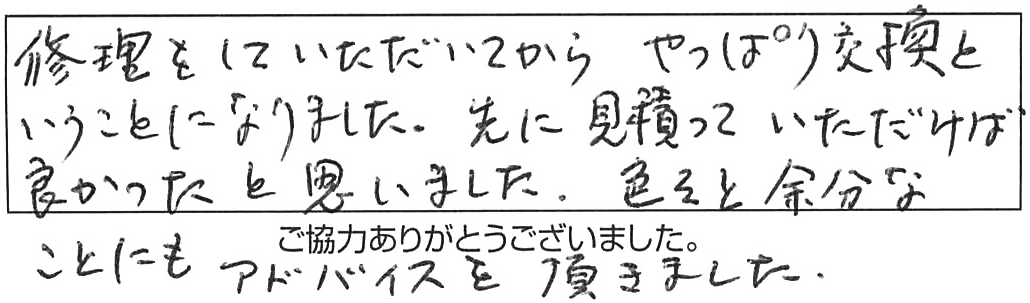 修理をしていただいてから やっぱり交換と
いうことになりました。先に見積っていただければ
良かったと思いました。色々と余分な
ご協力ありがとうございました。
ことにも アドバイスを頂きました.